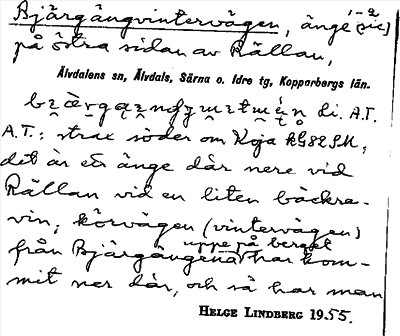 Bjärgångvintervägen, änge (sic) 1-2
på östra sidan av Rällan,
Älvdalens sn, Älvdals, Särna o. Idre tg, Kopparbergs län.
Li. A.T.
A.T.: strax söder om Koja kG82SM;
det är ett änge där nere vid
Rällan vid en liten bäckra-
vin; körvägen (vintervägen)
uppe på berget
från Bjärgångena har kom-
mit ner där, och så har man
HELGE LINDBERG 1955.